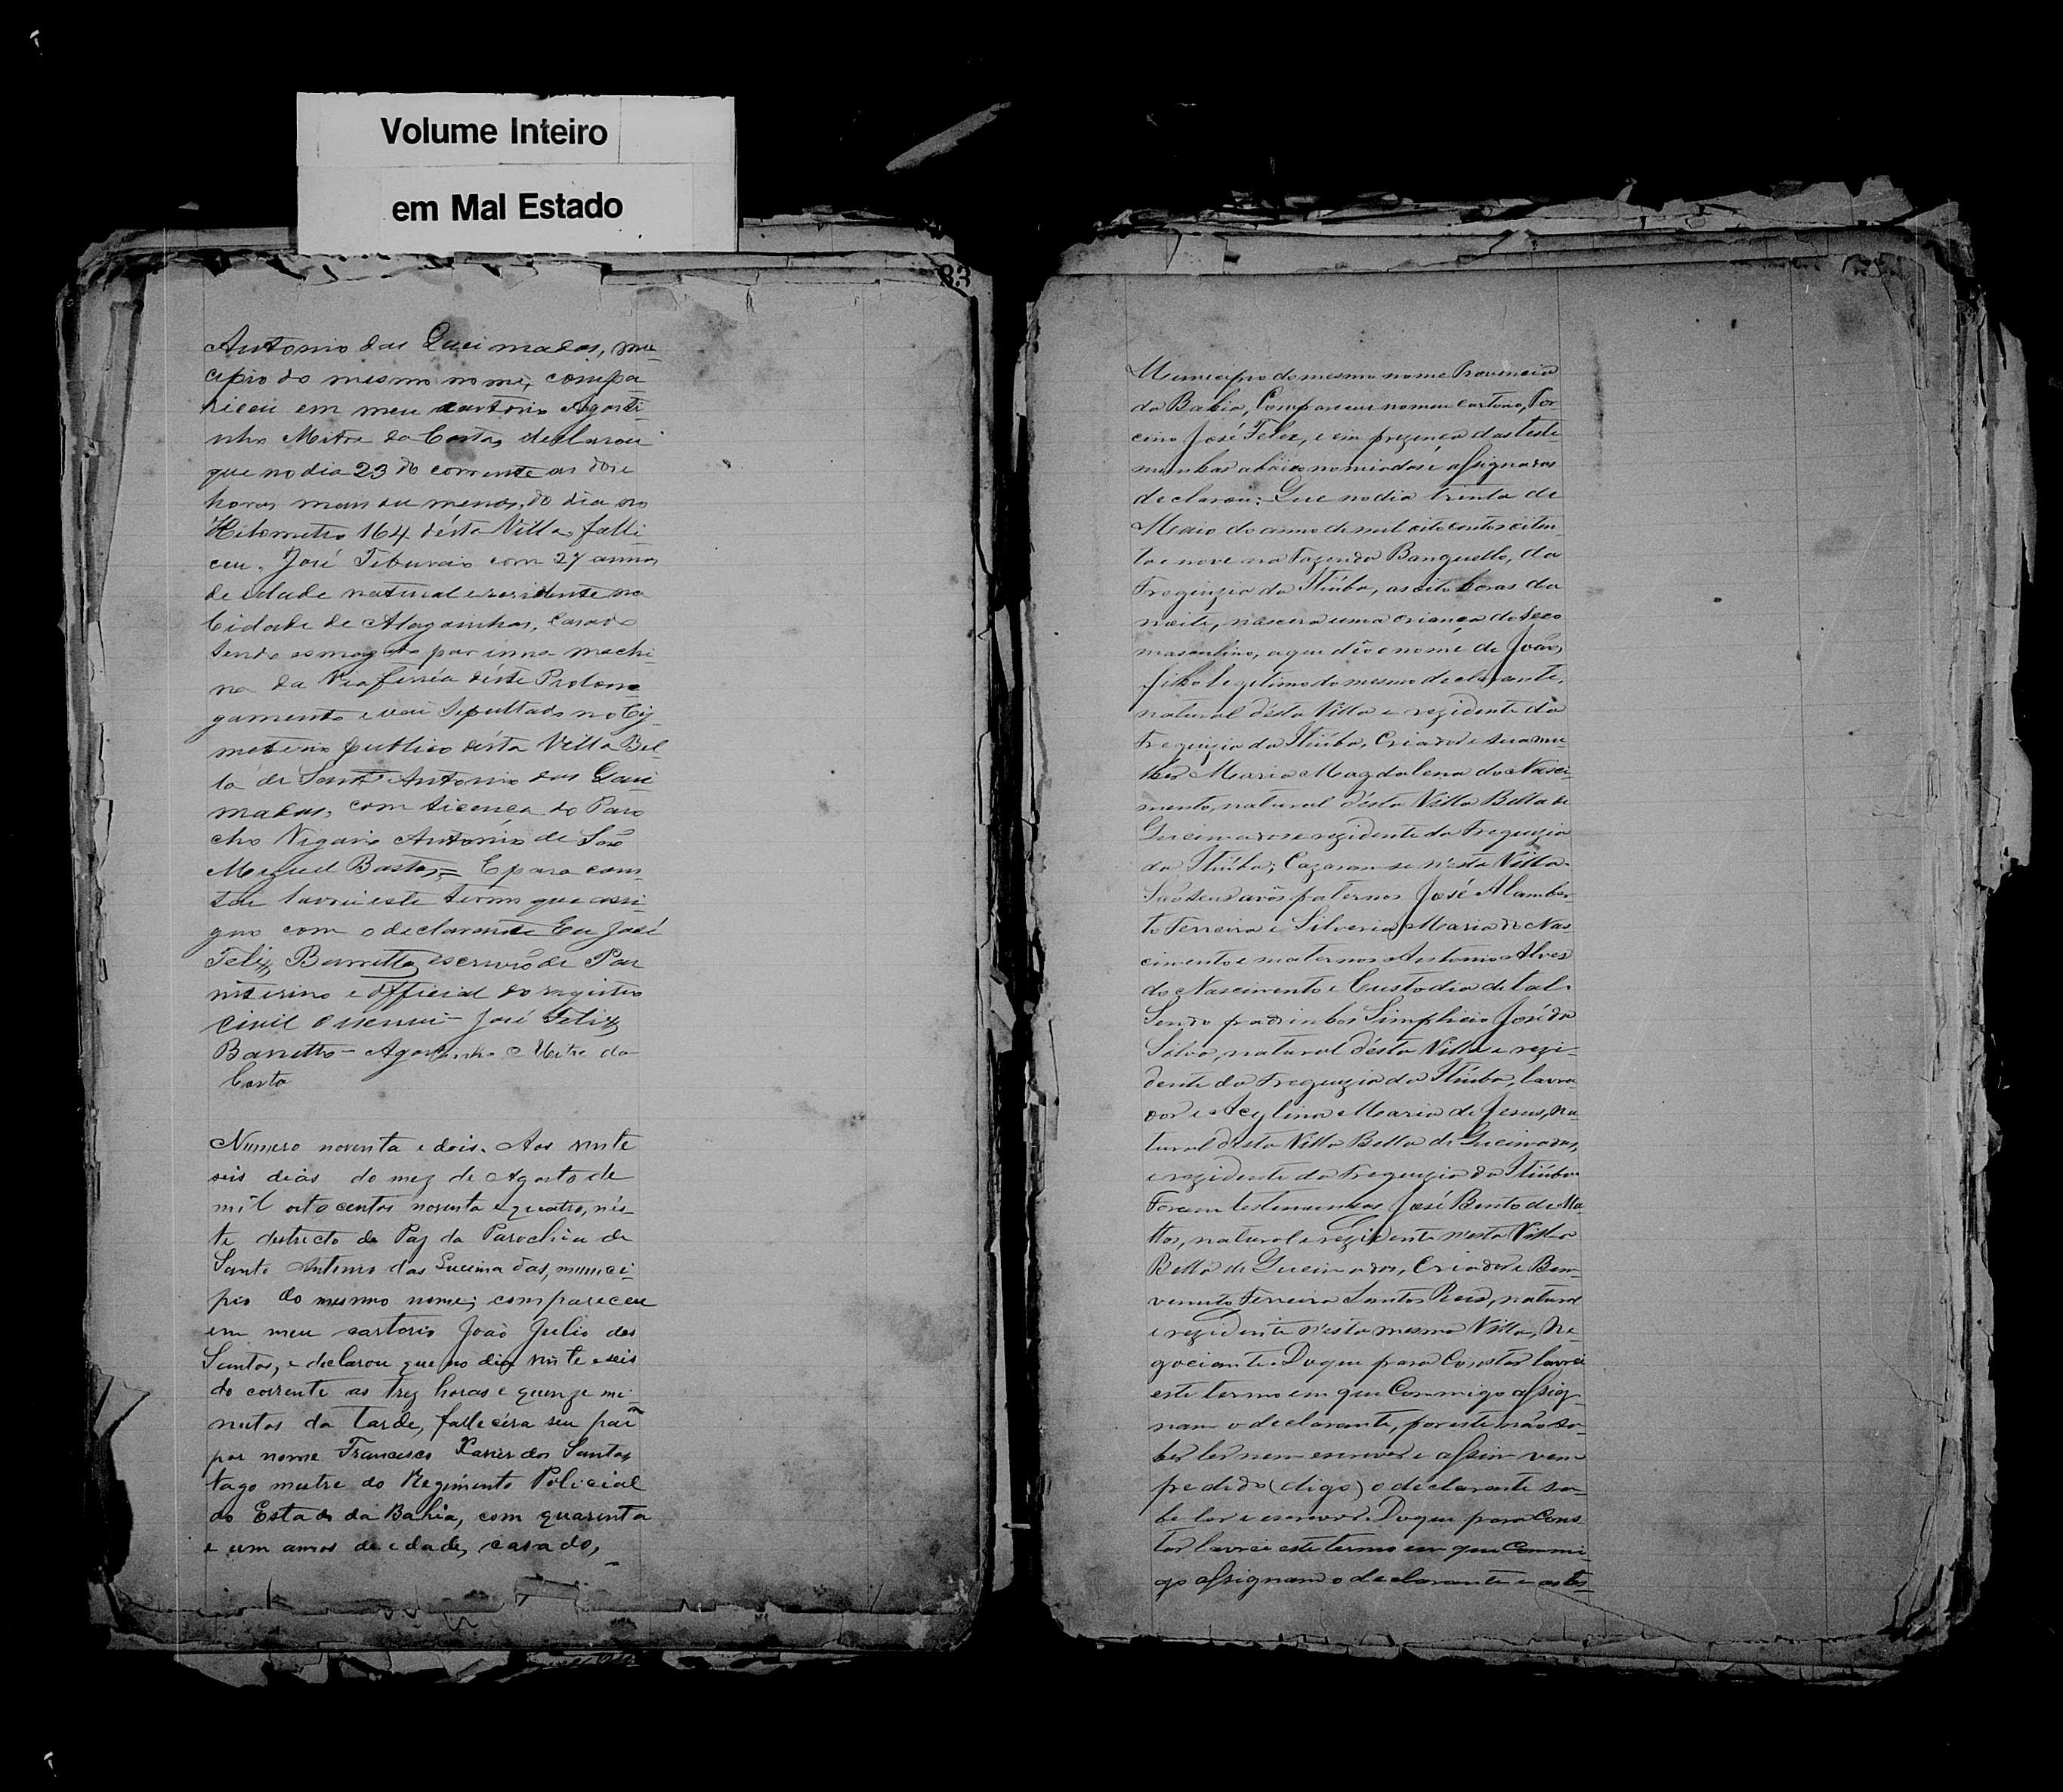 Volume Inteiro
em Mal Estado
83
Antonio das Queimadas, mu
cipio do mesmo nome, compa
riceu em meu cartorio Agosti
nho Mitre da Costa, declarou
que no dia 23 do corrente as dose
horas mais ou menos, do dia no
Kilometro 164 désta Villa, falli
ceu. José Teburcio com 27 annos
de idade natural e residente na
Cidade de Alagoinhas, Casado
sendo esmagado por uma machi
na da Via ferréa déste Prolon
gamento e vai Sepultado no Cy
meterio publico désta Villa Bel
la de Santo Antonio das Quei
madas, com licenca do Paro
cho Vigario Antonio de São
Miguel Bastos = E para cons
tar lavrei este termo que assi
gno com o declarante Eu José
Felix Barretto, escrivão de Paz
interino e official do registro
civil o escrevi - José Felix
Barretto - Agostinho Mitre da
Costa
Numero noventa e dois. Aos vinte
seis dias do mez de Agosto de
mil oito centos noventa e quatro, nés
te destricto de Paz da Parochia de
Santo Antonio das Queimadas, munici
pio do mesmo nome; compareceu
em meu cartorio João Julio dos
Santos, e declarou que no dia vinte e seis
do corrente as trez horas e quenze mi
nutos da tarde, fallecêra seu pai
por nome Francisco Xavier dos Santos
tago mestre do Regimento Policial
do Estado da Bahia, com quarenta
e um annos de edade, casado,
Municipio do mesmo nome Provincia
da Bahia, Compareceu no meu cartorio, Por
cino José Felex, e em prezença das teste
munhas abaixo nomiadas e assignadas
declarou: Que no dia trinta de
Maio do anno de mil oitocentos oiten
ta e nove na Fazenda Banguello, da
Freguizia da Itiúba, as oito horas da
noite, nascera uma criança do sexo
masculino, a que dêo o nome de João,
filho legitimo do mesmo declarante,
natural désta Villa e rezidente da
Freguizia da Itiúba, Criador e sua mu
lher Maria Magdalena do Nasci
mento, natural désta Villa Bella de
Queimadas e rezidente da Freguizia
da Itiúba; Cazaram-se n'esta Villa.
São seus avós paternos José Alamber
to Ferreira e Silveria Maria do Nas
cimento e maternos Antonio Alves
do Nascimento e Custodia de tal.
Sendo padrinhos Simplicio José da
Silva, natural désta Villa e rezi-
dente da Freguizia da Itiúba, lavra
dor e Acylina Maria de Jesus, na
tural désta Villa Bella de Queimadas,
e rezidente da Freguizia da Itiúba
Foram testimunhas José Bento de Ma
ttos, natural e rezidente n'esta Villa
Bella de Queimadas, Criador e Bem
venuto Ferreira Santos Reis, natural
e rezidente n'esta mesma Villa, Ne
gociante. Do que para Constar lavrei
este termo em que Commigo assig-
nam o declarante, por este não sa-
ber ler nem escrever e assim vem
pedido (digo) o declarante sa-
be ler e escrever. Do que para Cons
tar lavrei este termo em que Commi-
go assignam o declarante e as tes-